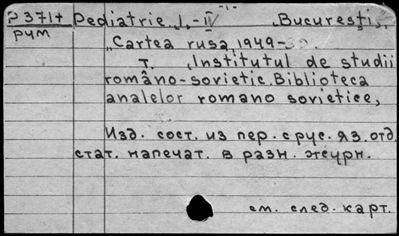 -1-
P 371+ Pediatrie I.-IV București,
рум
"Cartea rusa, 1949-
т. Institutul de studii
româno-sovietic. Biblioteca
analelor romano sovietice,
Изд. сост. из пер. с рус. яз. отд.
стат. напечат. в разн. журн.
см. след. карт.